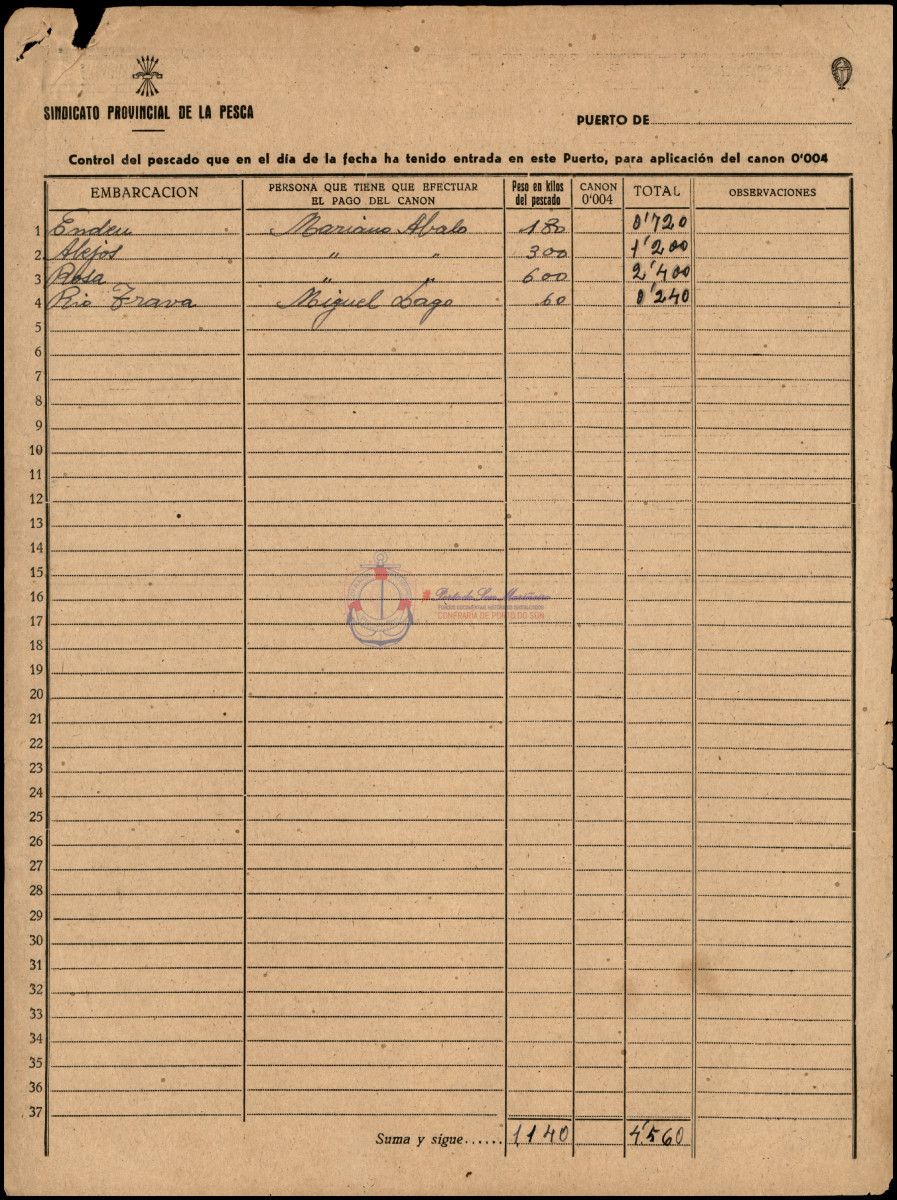 SINDICATO PROVINCIAL DE LA PESCA
PUERTO DE
Control del pescado que en el día de la fecha ha tenido entrada en este Puerto, para aplicación del canon 0'004
EMBARCACION PERSONA QUE TIENE QUE EFECTUAR EL PAGO DEL CANON Peso en kilos del pescado CANON 0'004 TOTAL OBSERVACIONES
1 Endeu Mariano Abalo 180 0'720
2 Alejos " " 300 1'200
3 Rosa " " 600 2'400
4 Rio Frava Miguel Lago 60 0'240
5
6
7
8
9
10
11
12
13
14
15
16
17
18
19
20
21
22
23
24
25
26
27
28
29
30
31
32
33
34
35
36
37
Suma y sigue...... 1140 4'560
Porto do Son Mariñeiro
FONDOS DOCUMENTAIS HISTÓRICOS DIXITALIZADOS
CONFRARÍA DE PORTO DO SON